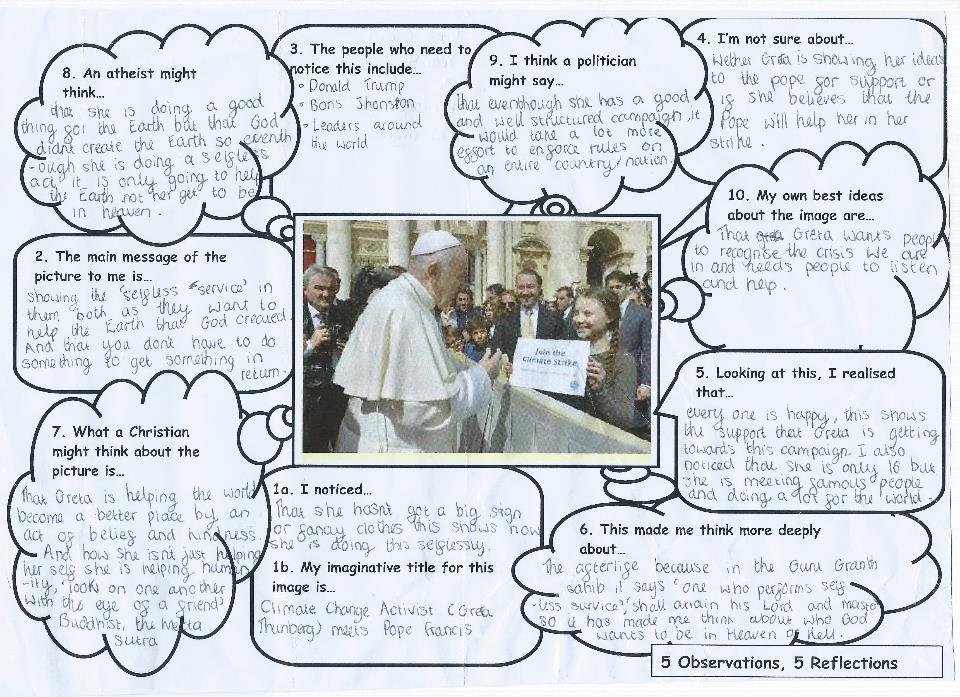 8. An atheist might
think...
that she is doing a good
thing for the Earth but that God
didnt create the Earth so eventh
-ough she is doing a selfless
act it is only going to help
the Earth not her get to be
in heaven.
3. The people who need to
notice this include...
• Donald Trump
• Boris Jhonston
• Leaders around
the world
9. I think a politician
might say...
that eventhough she has a good
and well structured campaign, it
would take a lot more
effort to enforce rules on
an entire country/nation.
4. I'm not sure about...
Wether Greta is showing her ideas
to the pope for support or
if she believes that the
Pope will help her in her
strike.
10. My own best ideas
about the image are...
That Greta wants people
to recognise the crisis we are
in and needs people to listen
and help.
2. The main message of the
picture to me is...
Showing the 'selfless service' in
them both as they want to
help the Earth that God created.
And that you dont have to do
something to get something in
return.
Join the
Climate Strike
5. Looking at this, I realised
that...
every one is happy, this shows
the support that Greta is getting
towards this campaign. I also
noticed that she is only 16 but
she is meeting famous people
and doing a lot for the world.
7. What a Christian
might think about the
picture is...
That Greta is helping the world
become a better place by an
act of belief and kindness.
And how she isnt just helping
her self she is helping human
-ity, 'look on one another
with the eye of a friend'
Buddhist, the Metta
Sutra
1a. I noticed...
That she hasnt got a big sign
or fancy clothes this shows how
she is doing this selflessly.
1b. My imaginative title for this
image is...
Climate Change Activist (Greta
Thunberg) meets Pope Francis
6. This made me think more deeply
about...
The afterlife because in the Guru Granth
sahib it says 'one who performs self
-less service, shall attain his Lord and master'
so it has made me think about who God
wants to be in Heaven or Hell.
5 Observations, 5 Reflections